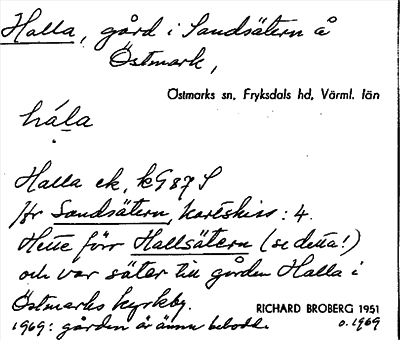 Halla, gård i Sandsätern å
Östmark,
Östmarks sn, Fryksdals hd, Värml. län
hála
Halla ek, kG87S
Hr Sandsätern, kartskiss: 4.
Hette förr Hallsätern (se detta!)
och var säter till gården Halla i
Östmarks kyrkby.
RICHARD BROBERG 1951
1969: gården är ännu bebodd.
o. 1969